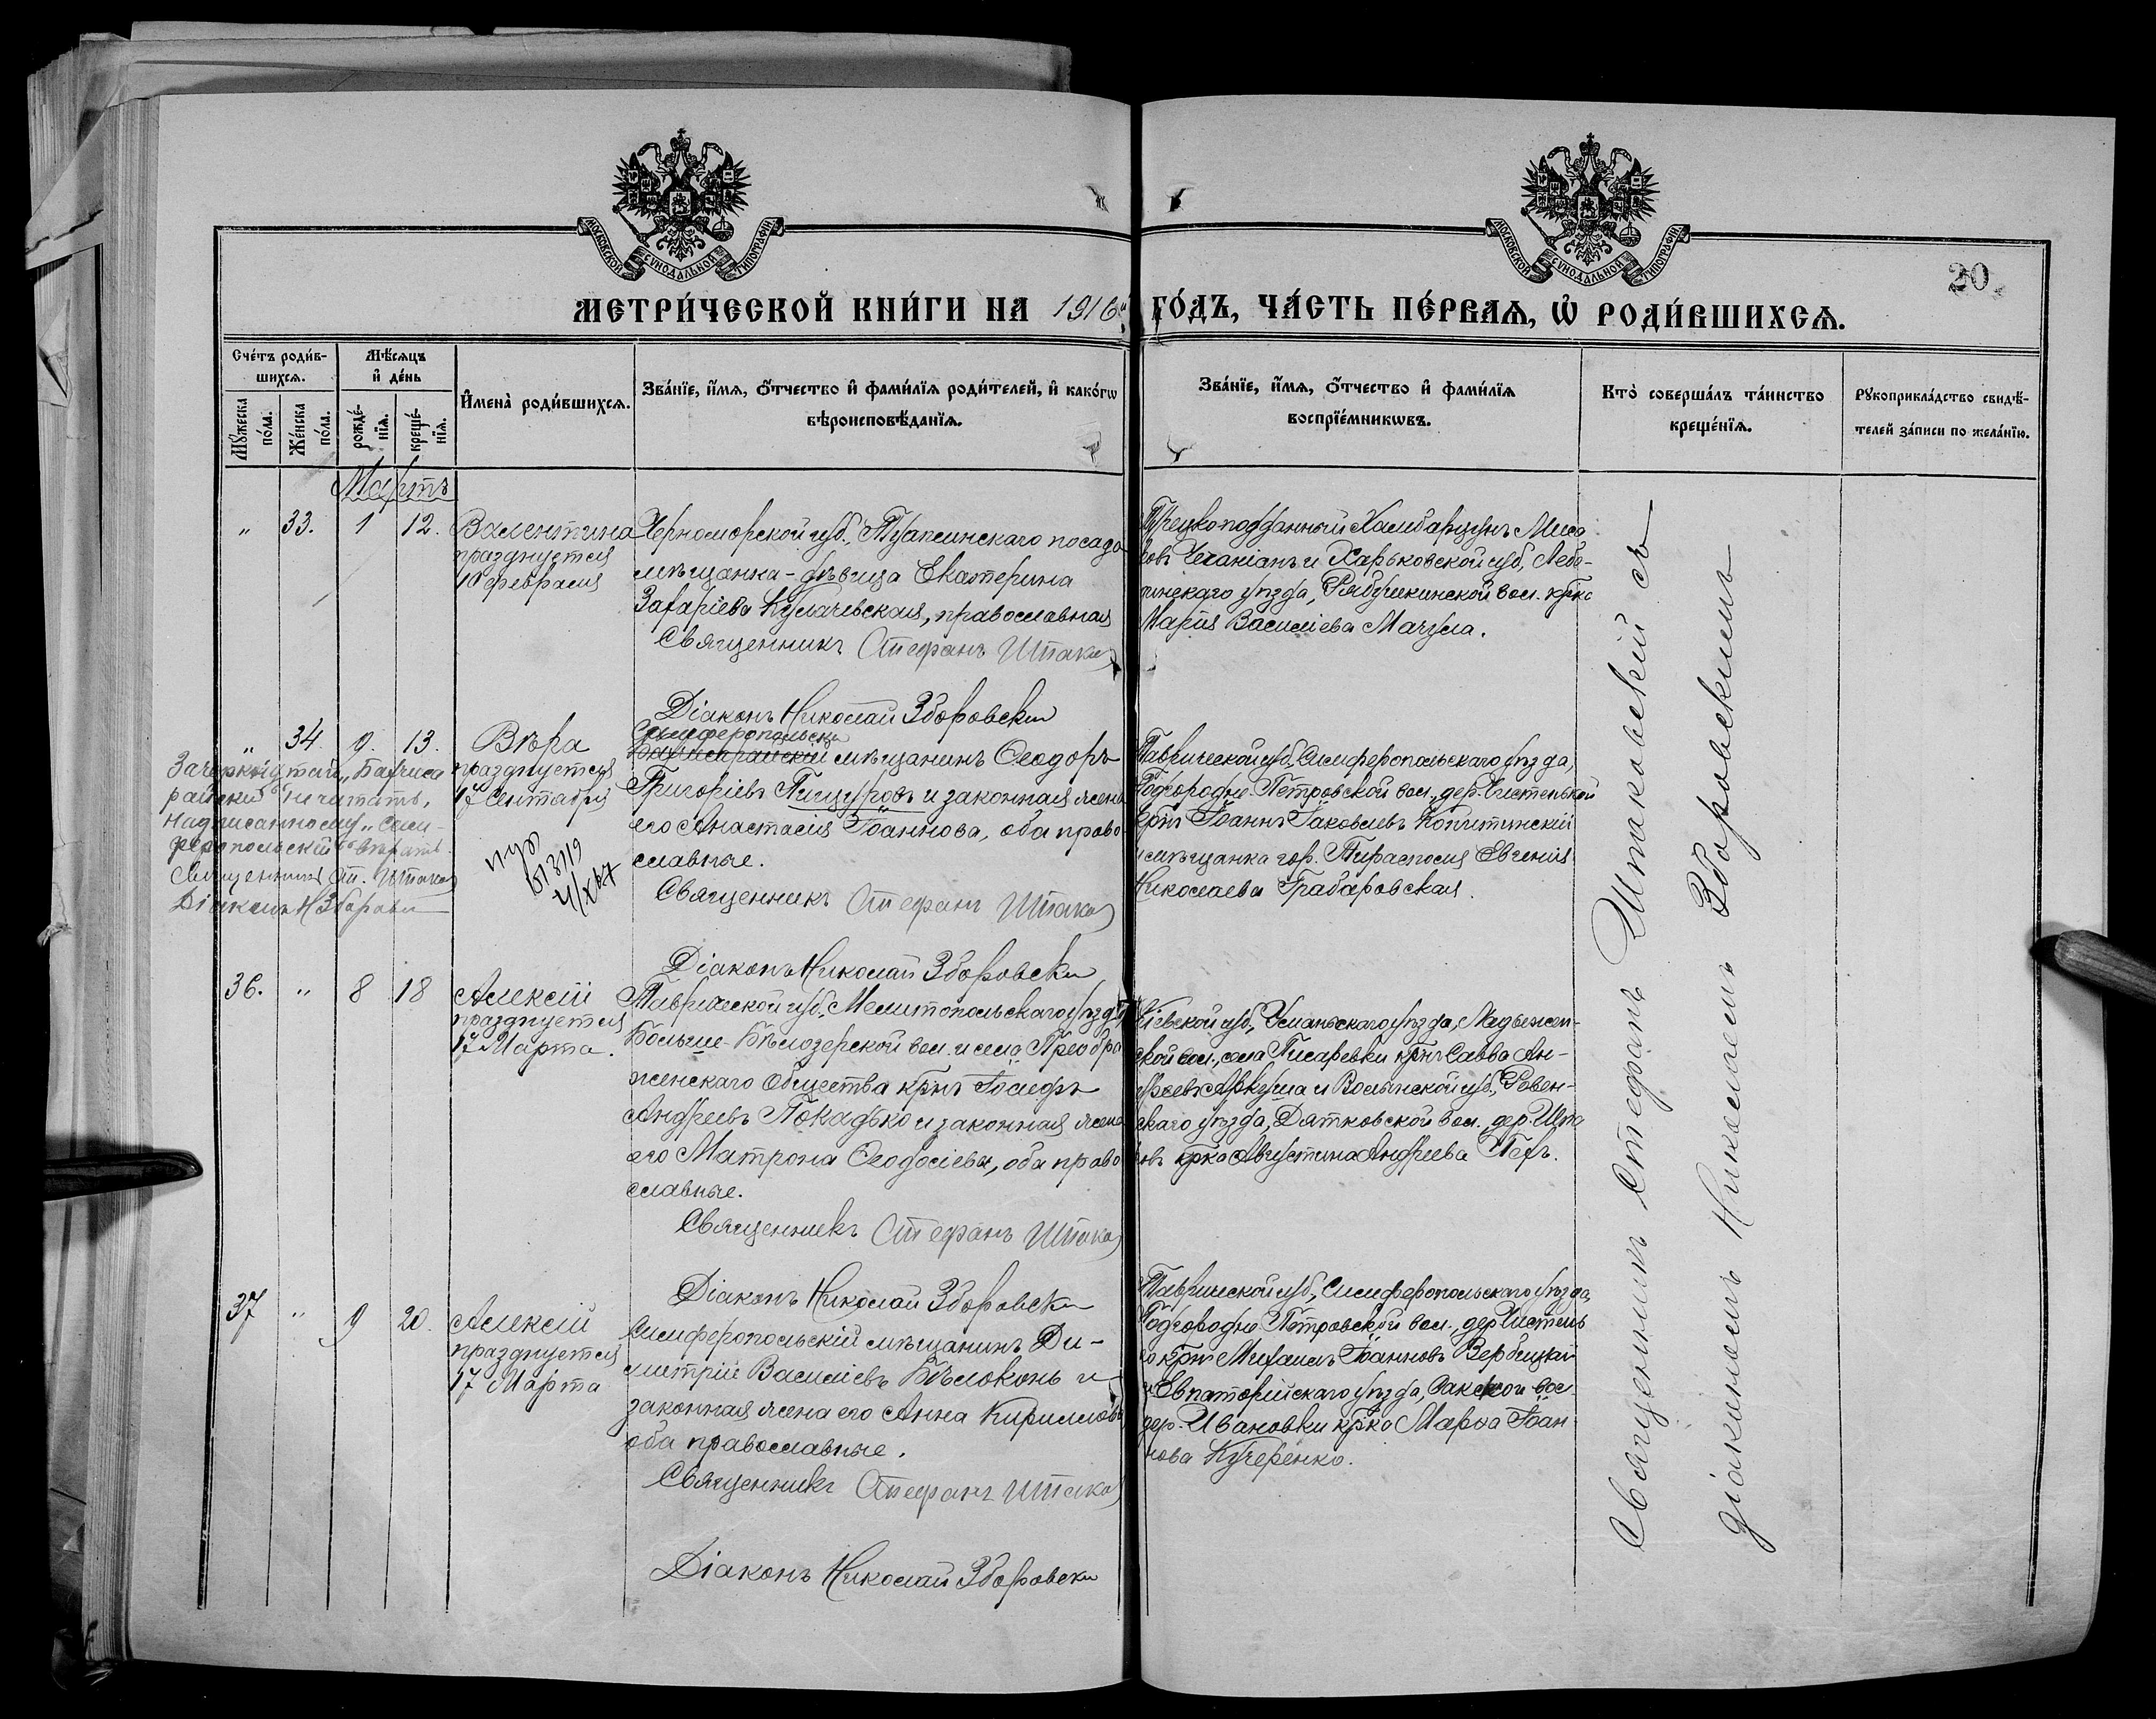 МОСКОВСКОЙ СѴНОДАЛЬНОЙ ТИПОГРАФІИ
МОСКОВСКОЙ СѴНОДАЛЬНОЙ ТИПОГРАФІИ
20
МЕТРИ́ЧЕСКОЙ КНИ́ГИ НА 1916й ГО́ДЪ, ЧА́СТЬ ПЕ́РВАѦ, Ѡ҆ РОДИ́ВШИХСѦ.
Сче́тъ роди́в-
шихсѧ.
Мꙋ́жеска по́ла.
Же́нска по́ла.
Мѣ́сѧцъ
и҆ де́нь
рожде́-
нїѧ.
креще́-
нїѧ.
И҆мена̀ роди́вшихсѧ.
Зва́нїе, и҆́мѧ, ѻ҆́тчество и҆ фами́лїѧ роди́телей, и҆ како́гѡ
вѣроисповѣ́данїѧ.
Зва́нїе, и҆́мѧ, ѻ҆́тчество и҆ фами́лїѧ
воспрїе́мникѡвъ.
Кто̀ соверша́лъ та́инство
креще́нїѧ.
Рꙋкоприкла́дство свидѣ́-
телей за́писи по жела́нїю.
Мартъ
" 33. 1 12. Валентина
празднуется
10 февраля
Черноморской губ., Туапсинскаго посада
мѣщанка-дѣвица Екатерина
Захаріева Кулачевская, православная
Священникъ Стефанъ Штака
Діаконъ Николай Зборовски
Турецкоподданный Хамбарцунъ
Чехакіанъ и Харьковской губ., Лебе-
динскаго уѣзда, Рябушкинской вол. крка
Марія Василіева Мачула.
" 34 9. 13. Вѣра
празднуется
17 Сентября
Зачеркнутаго „Бахчиса
райскій" не читать,
надписанному „Сим-
феропольскій" вѣрить.
Священникъ Ст. Штака
Діаконъ Н Зборовски
Симферопольскій
Бахчисарайскій мѣщанинъ Ѳеодоръ
Григоріевъ Пищуровъ и законная жена
его Анастасія Іоаннова, оба право-
славные.
Священникъ Стефанъ Штака
Діаконъ Николай Зборовски
Таврической губ. Симферопольскаго уѣзда,
Подгородне-Петровской вол., дер. Чистенькой
крнъ Іоаннъ Іаковлевъ Копытинскій
и мѣщанка гор. Тирасполя Евгенія
Николаева Грабаровская.
36. " 8 18 Алексій
празднуется
17 Марта.
Таврической губ., Мелитопольскаго уѣзда
Больше-Бѣлозерской вол. и села Преобра
женскаго общества крнъ Іосифъ
Андреевъ Покадько и законная жена
его Матрона Ѳеодосіева, оба право
славные.
Священникъ Стефанъ Штака
Діаконъ Николай Зборовски
Кіевской губ., Уманьскаго уѣзда, Ладыжен-
ской вол., села Писаревки крнъ Савва Ан-
дреевъ Аркуша и Волынской губ., Ровен-
скаго уѣзда, Дятковской вол. дер.
крка Августина Андреева
37 " 9 20. Алексій
празднуется
17 Марта
Симферопольскій мѣщанинъ Ди-
митрій Василіевъ Бѣлоконь и
законная жена его Анна Кириллова
оба православные.
Священникъ Стефанъ Штака
Діаконъ Николай Зборовски
Таврической губ., Симферопольскаго уѣзда,
Подгородне Петровской вол., дер Чистень
крнъ Михаилъ Іоанновъ Вербицкій
и Евпаторійскаго уѣзда, Сакской вол.
дер. Ивановки крка Марѳа Іоан
нова Кучеренко.
Священникъ Стефанъ Штаковскій съ
діакономъ Николаемъ Зборовскимъ